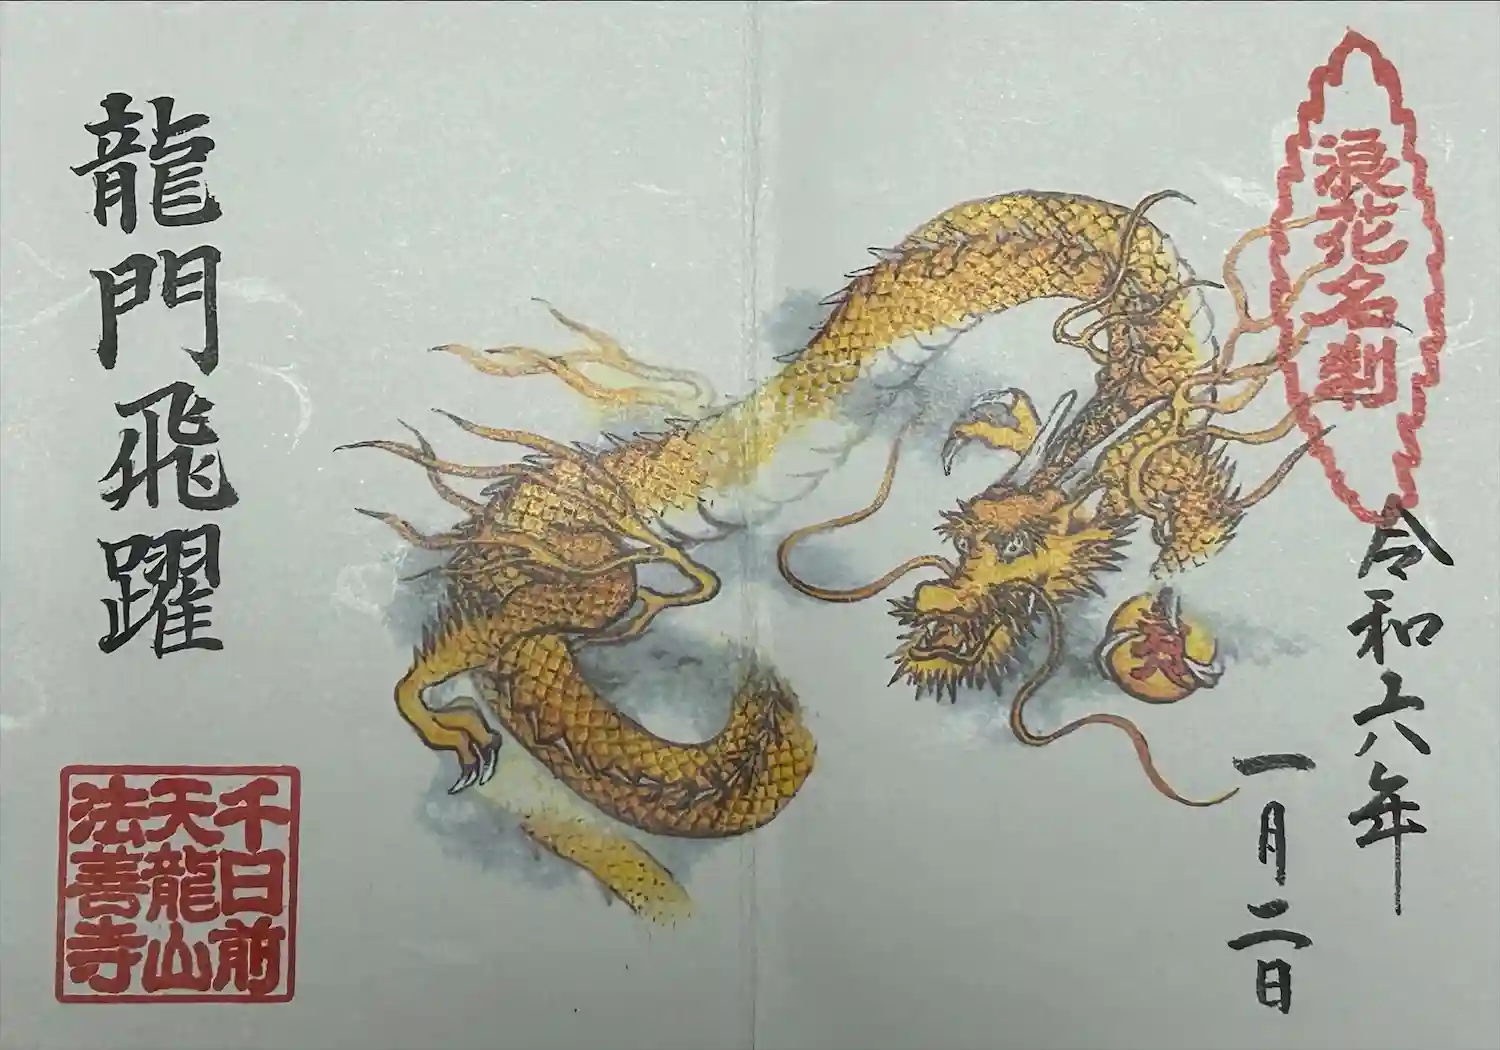 浪花名刹
令和六年
一月二日
龍門飛躍
千日前
天龍山
法善寺